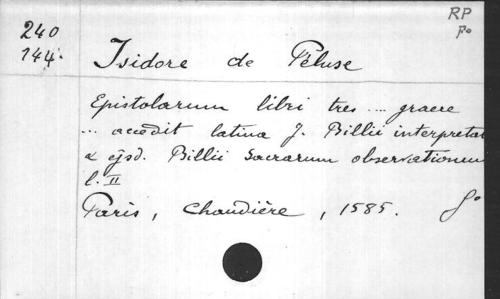 240
144.
RP
fo
Isidore de Péluse
Epistolarum libri tres ... graece
... accedit latina J. Billii interpretat
& ejsd. Billii Sacrarum observationum
l. II
Paris, Chaudière, 1585. fo